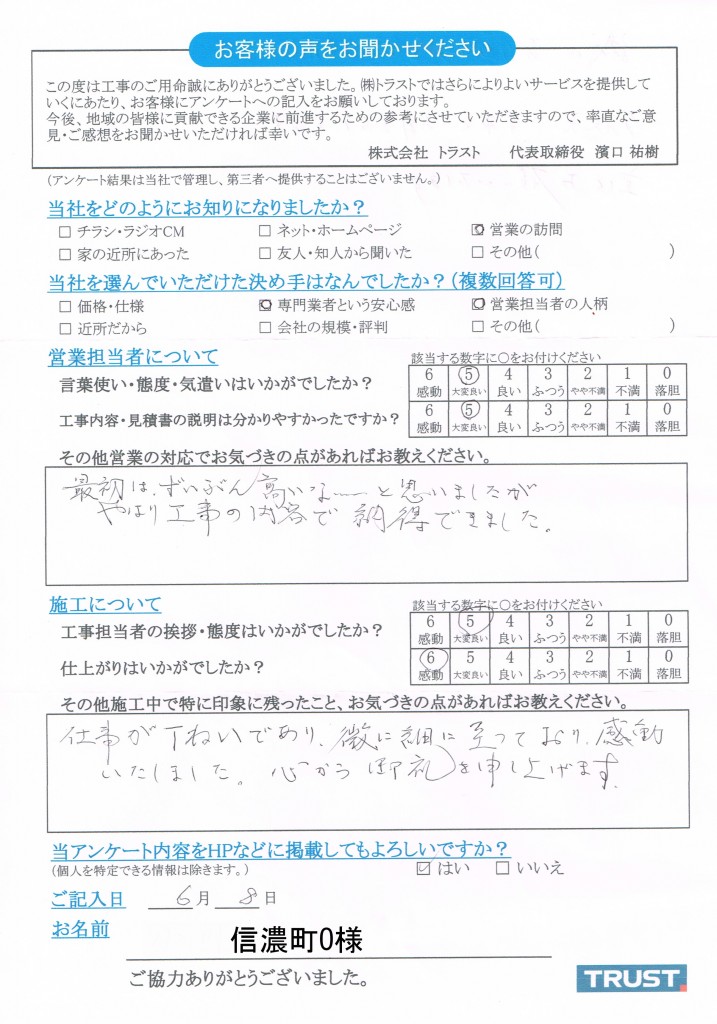 お客様の声をお聞かせください
この度は工事のご用命誠にありがとうございました。㈱トラストではさらによりよいサービスを提供して
いくにあたり、お客様にアンケートへの記入をお願いしております。
今後、地域の皆様に貢献できる企業に前進するための参考にさせていただきますので、率直なご意
見・ご感想をお聞かせいただければ幸いです。
株式会社 トラスト 代表取締役 濱口 祐樹
(アンケート結果は当社で管理し、第三者へ提供することはございません。)
当社をどのようにお知りになりましたか？
□ チラシ・ラジオCM □ ネット・ホームページ ☑ 営業の訪問
□ 家の近所にあった □ 友人・知人から聞いた □ その他( )
当社を選んでいただけた決め手はなんでしたか？(複数回答可)
□ 価格・仕様 ☑ 専門業者という安心感 ☑ 営業担当者の人柄
□ 近所だから □ 会社の規模・評判 □ その他( )
営業担当者について 該当する数字に○をお付けください
言葉使い・態度・気遣いはいかがでしたか？ 6 5 4 3 2 1 0
感動 大変良い 良い ふつう やや不満 不満 落胆
工事内容・見積書の説明は分かりやすかったですか？ 6 5 4 3 2 1 0
感動 大変良い 良い ふつう やや不満 不満 落胆
その他営業の対応でお気づきの点があればお教えください。
最初は、ずいぶん高いな――と思いましたが
やはり工事の内容で納得できました。
施工について 該当する数字に○をお付けください
工事担当者の挨拶・態度はいかがでしたか？ 6 5 4 3 2 1 0
感動 大変良い 良い ふつう やや不満 不満 落胆
仕上がりはいかがでしたか？ 6 5 4 3 2 1 0
感動 大変良い 良い ふつう やや不満 不満 落胆
その他施工中で特に印象に残ったこと、お気づきの点があればお教えください。
仕事が丁ねいであり、微に細に至っており、感動
いたしました。心から御礼を申し上げます。
当アンケート内容をHPなどに掲載してもよろしいですか？
(個人を特定できる情報は除きます。) ☑ はい □ いいえ
ご記入日 6月 8日
お名前 信濃町O様
ご協力ありがとうございました。
TRUST.